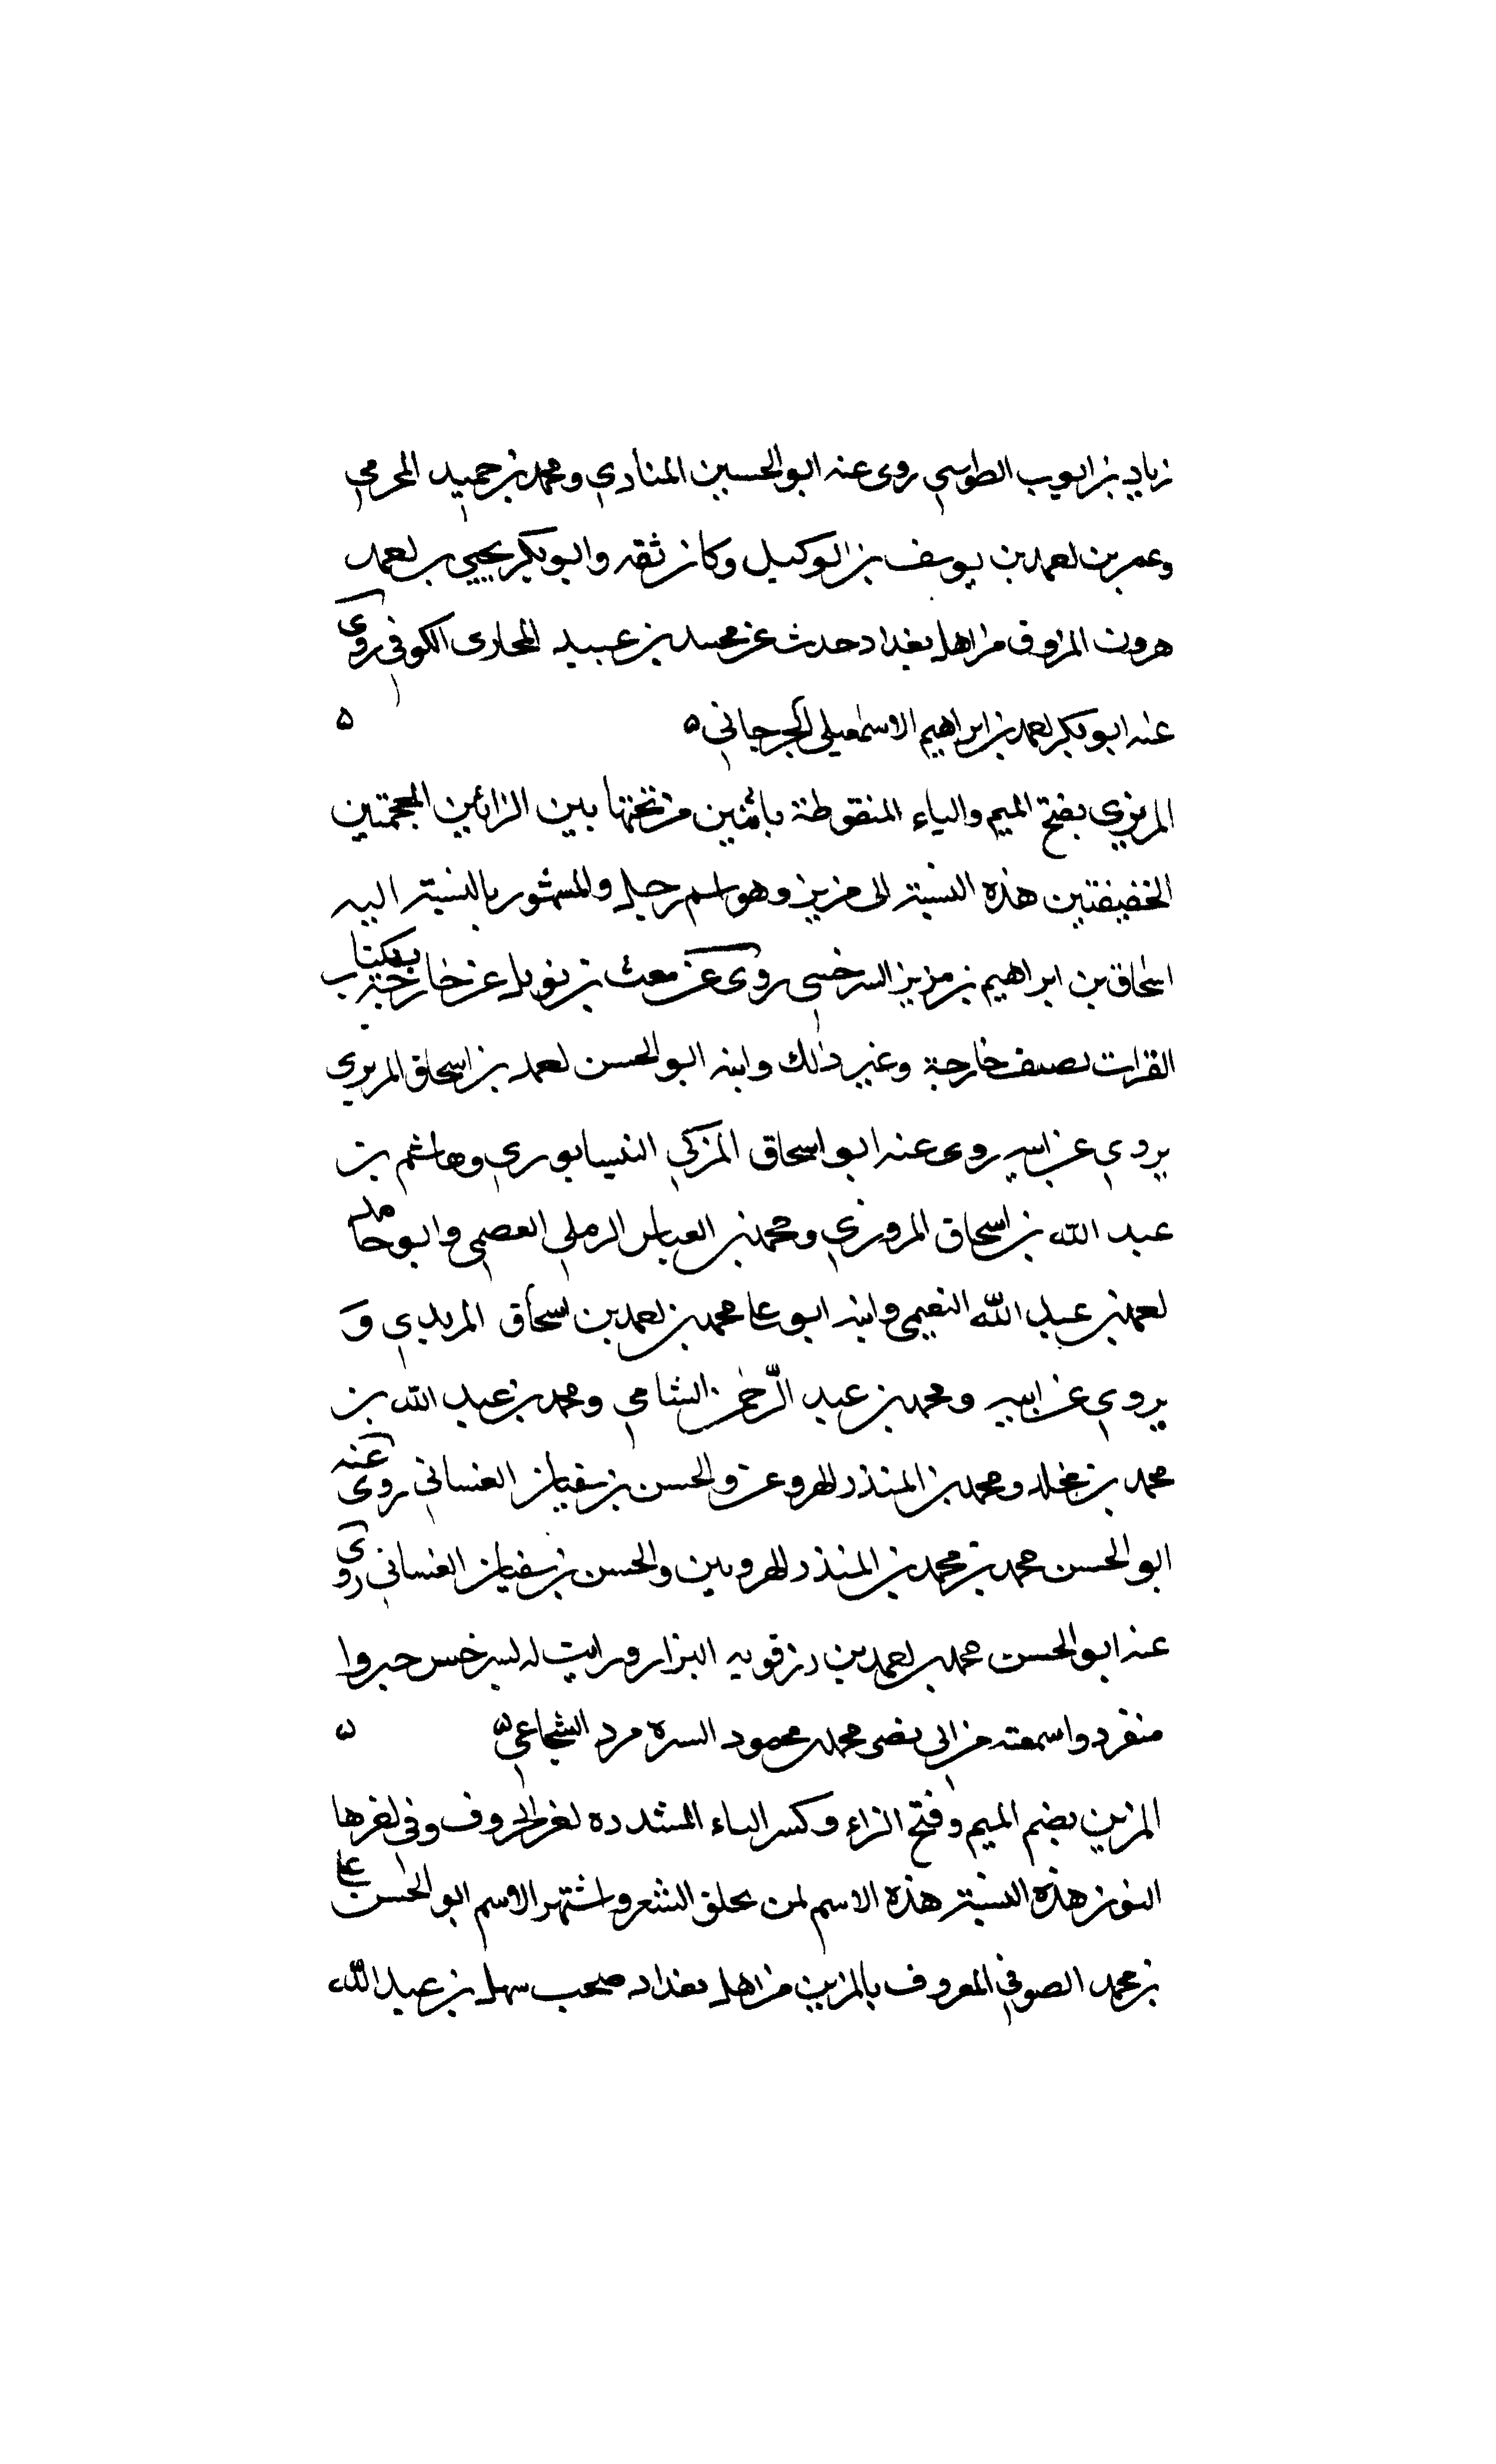 زياد بن ايوب الطوسي روى عنه ابو الحسين المنادي ومحمد بن حميد المخرمي
وعمر بن احمد بن يوسف بن الوكيل وكان ثقه وابو بكر يحيى بن احمد
هرون المزوق من اهل بغداد حدث عن محمد بن عبيد المحاربى الكوفي روى
عنه ابو بكر احمد بن ابراهيم الاسمعيلي الجرجاني ه ه
المزيزي بفتح الميم والياء المنقوطة باثنتين من تحتها بين الزائين المعجمتين
الخفيفتين هذه النسبة الى مزيز وهو اسم رجل والمشهور بالنسبة اليه
اسحاق بن ابراهيم بن مزيز السرخسي روى عن مغيث بن بديل عن خارجة بكتاب
القرات تصنيف خارجة وغير ذلك وابنه ابو الحسن احمد بن اسحاق المزيزي
يروي عن ابيه روى عنه ابو اسحاق المزكي النيسابوري وهاشم بن
عبد الله بن اسحاق المروزي ومحمد بن العباس الرملي العصمي وابو حامد
احمد بن عبد الله النعيمي وابنه ابو علي محمد بن احمد بن اسحاق المزيزي و
يروي عن ابيه ومحمد بن عبد الرحمن الشامي ومحمد بن عبد الله بن
محمد بن مخلد ومحمد بن المنذر الهروي والحسن بن سفيان الغساني روى عنه
ابو الحسن محمد بن محمد بن المنذر الهرويين والحسن بن سفيان الغساني روى
عنه ابو الحسن محمد بن احمد بن رزقويه البزار ورايت له بسرخس جزوا
منفردا سمعته من ابي نصر محمد بن محمود السره مرد الشجاعي ه ه
المزين بضم الميم وفتح الزاء وكسر الياء المشدده اخر الحروف وفي اخرها
النون هذه النسبة هذه الاسم لمن يحلق الشعر واشتهر الاسم ابو الحسن علي
بن محمد الصوفي المعروف بالمزين من اهل بغداد صحب سهل بن عبد الله